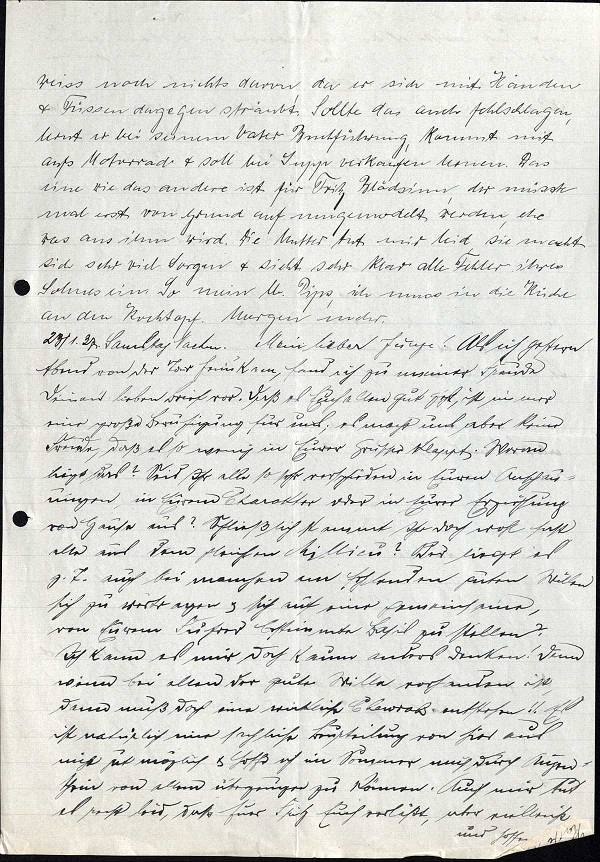 weiss noch nichts davon da er sich mit Händen
& Füssen dagegen sträubt. Sollte das auch fehlschlagen,
lernt er bei seinem Vater Buchführung, kommt mit
aufs Motorrad & soll bei Supp verkaufen lernen. Das
eine wie das andere ist für Fritz Blödsinn, der müsste
mal erst von Grund auf umgemodelt werden ehe
was aus ihm wird. Die Mutter tut mir leid sie macht
sich sehr viel Sorgen & sieht sehr klar alle Fehler ihres
Sohnes ein. So mein l. Pips ich muss in die Küche
an den Kochtopf. Morgen mehr.
Mein lieber Junge! Als ich gestern
Abend von der kam, fand ich zu meiner Freude
Deinen lieben Brief vor. Daß es Euch allen gut geht, ist immer
eine große Beruhigung für uns; es macht uns aber keine
Freude, daß es so wenig in Eurer Gruppe klappt. Woran
liegt das? Seid Ihr alle so sehr verschieden in Euren Anschau-
ungen, in Eurem Charakter oder in Eurer Erziehung
von Hause aus? Schließlich stammt Ihr doch wohl fast
alle aus dem gleichen Millieu? Oder liegt es
z. T. auch bei manchen am fehlenden guten Willen
sich zu & sich auf eine gemeinsame,
von Eurem bestimmte Basis zu stellen?
Ich kann es mir doch kaum anders denken! Denn
wenn bei allen der gute Wille vorhanden ist,
dann muß doch eine wirkliche entstehen!! Es
ist natürlich eine sachliche Beurteilung von hier aus
nicht gut möglich & hoffe ich im Sommer mich durch Augen-
schein von allem überzeugen zu können. Auch mir tut
es recht leid, daß Euch verläßt, aber vielleicht
und